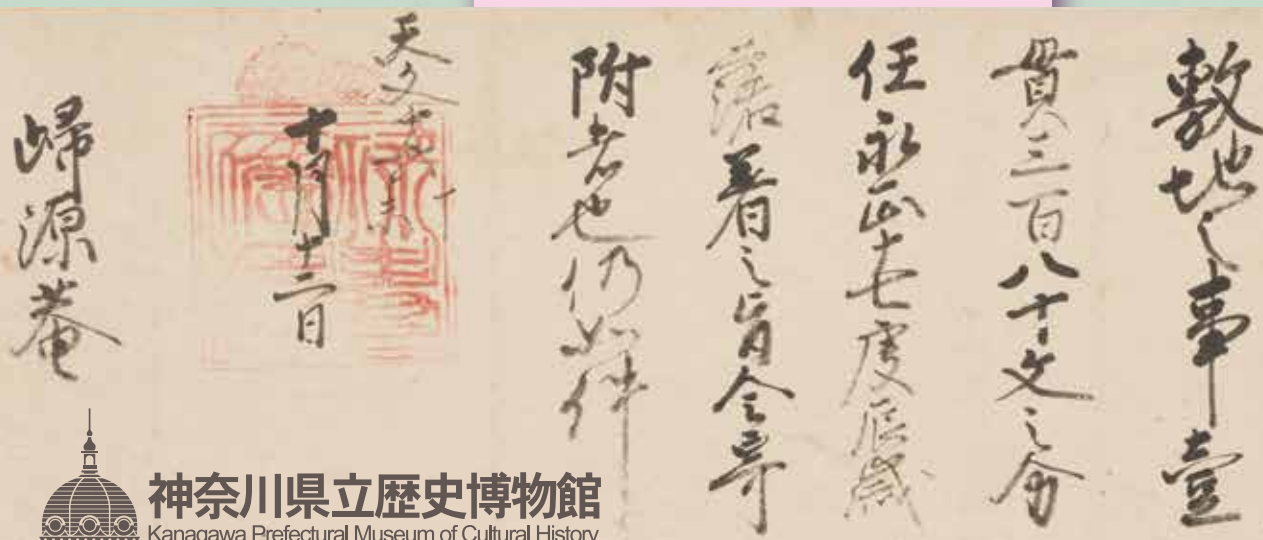 敷地之事壹
貫三百八十文之分
任永正十七庚辰歳
落着之旨令寄
附者也仍如件
天文十六丁未
十月十二日
歸源菴
神奈川県立歴史博物館
Kanagawa Prefectural Museum of Cultural History